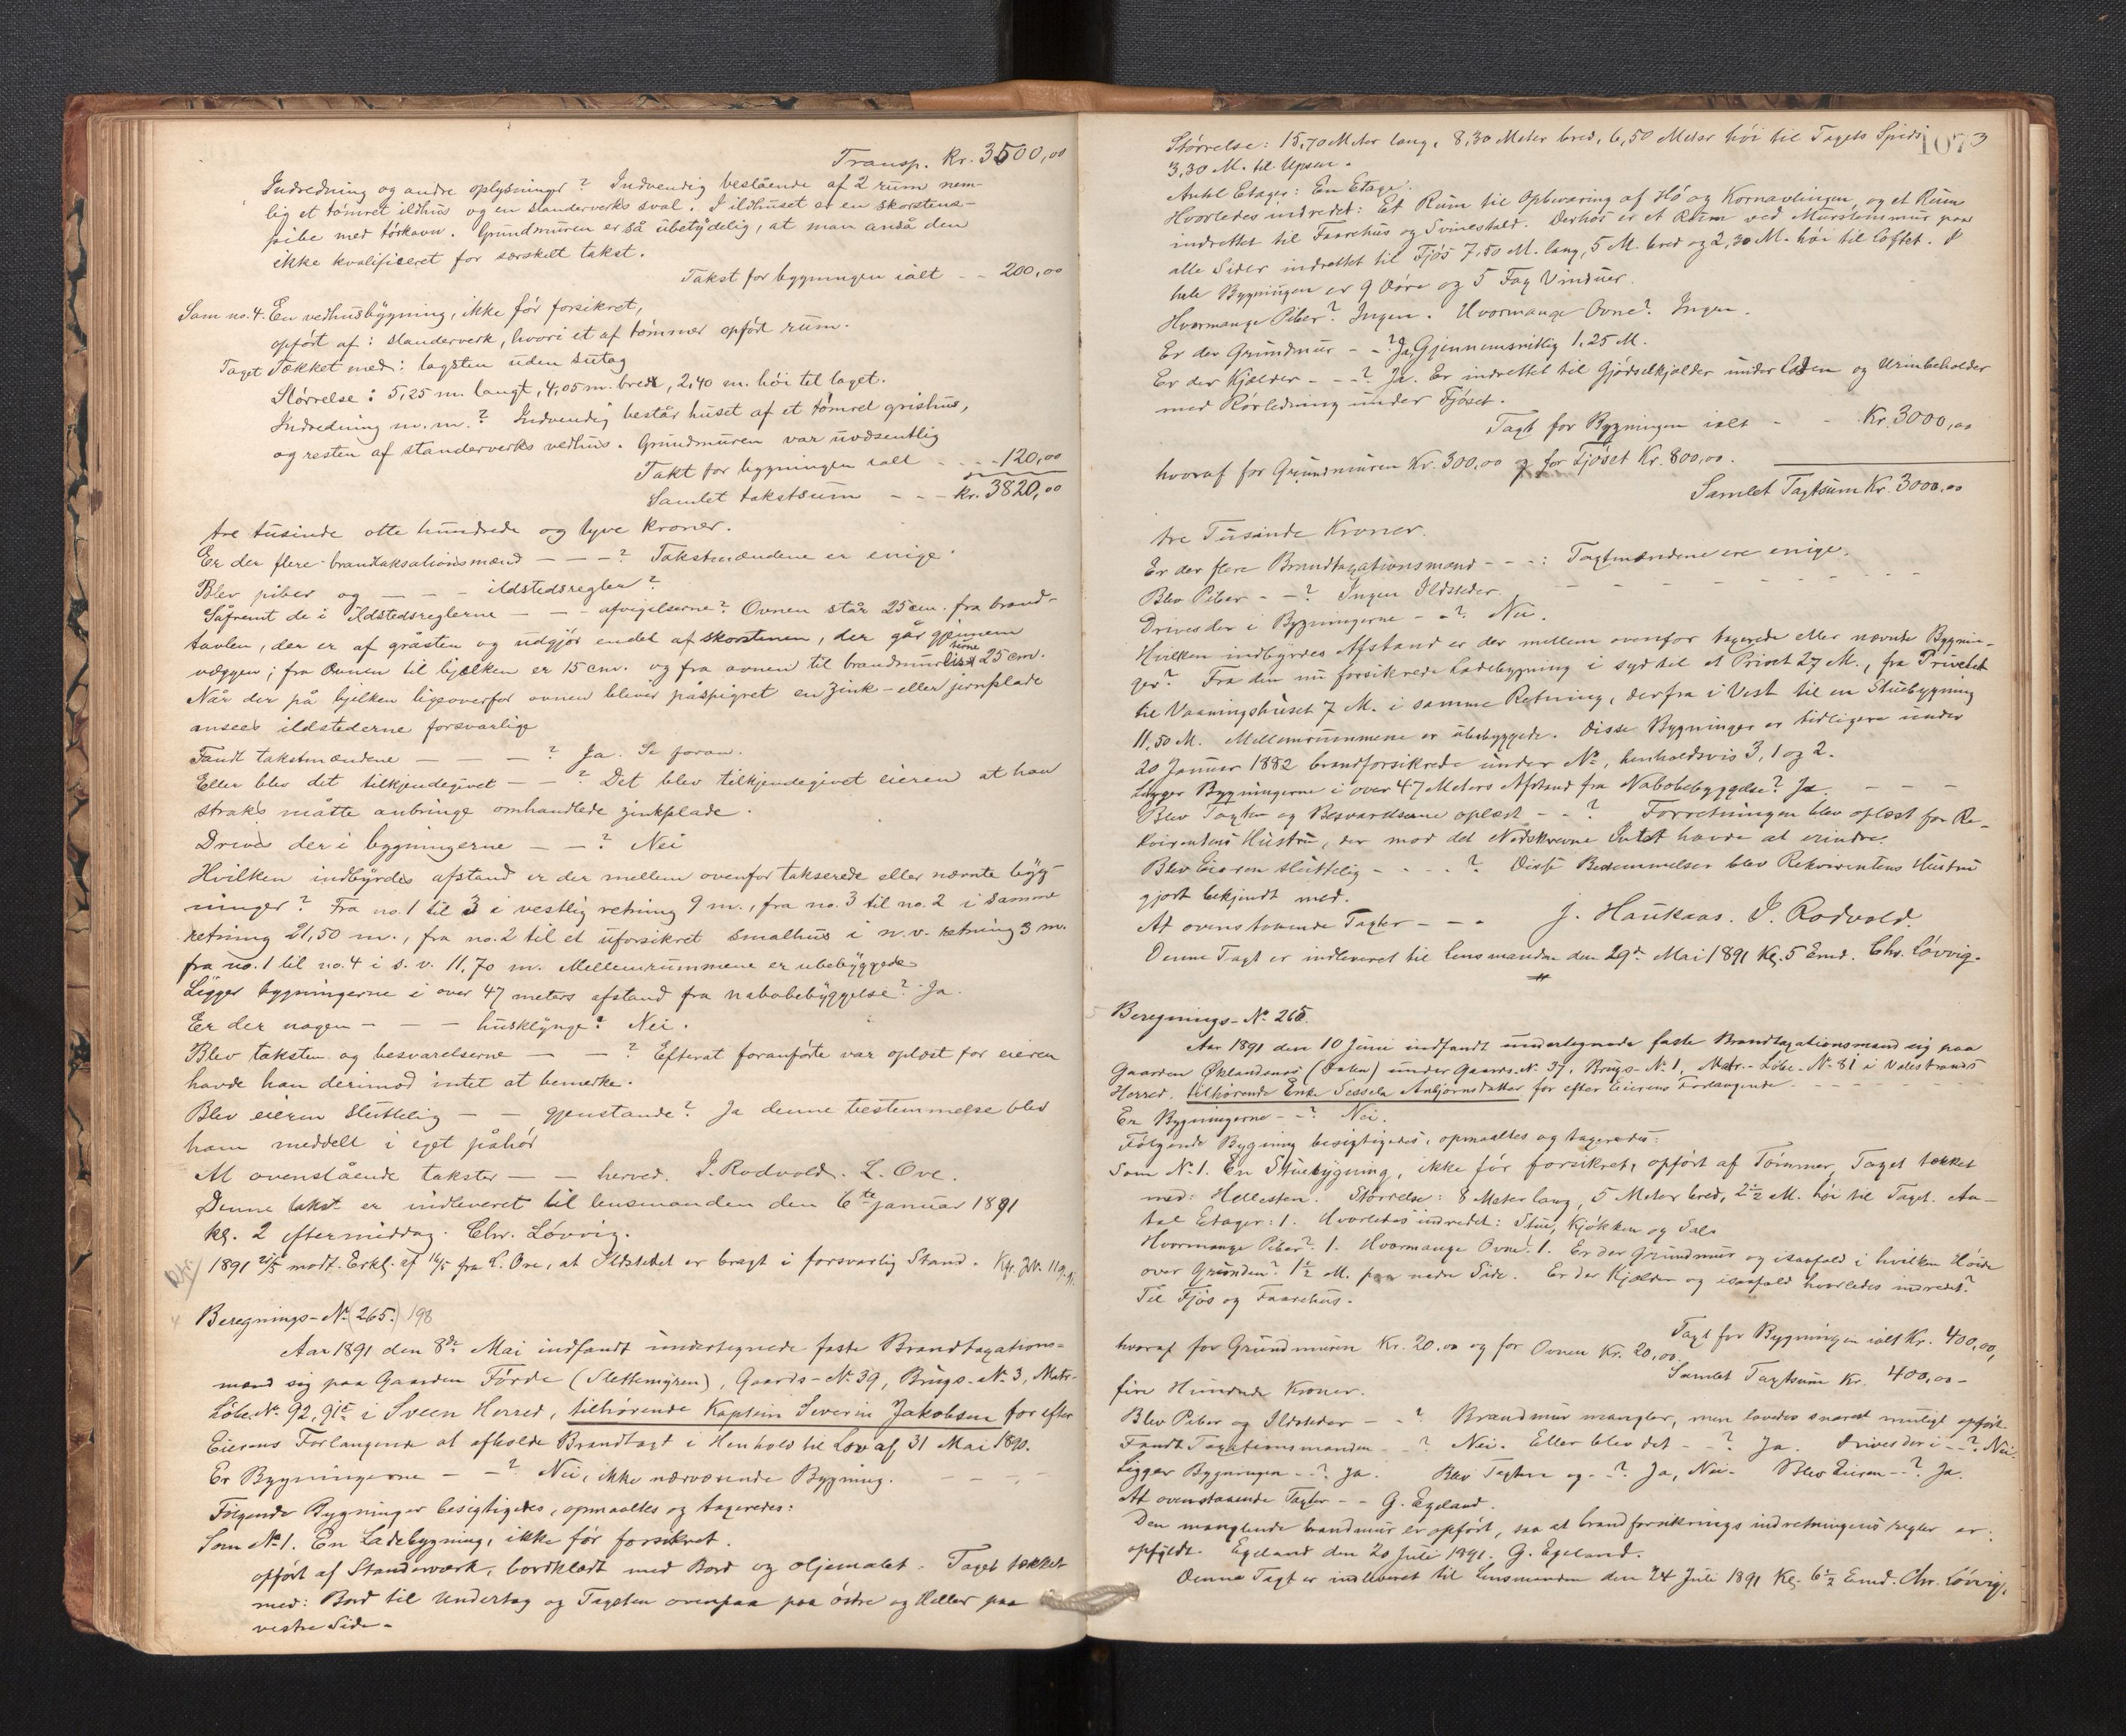 Transp. Kr. 3500,00
Indredning og andre oplysninger? Indvendig bestående af 2 rum nem-
lig et tömret ildhus og en standerverks sval. I ildhuset er en skorstens-
pibe med törkovn. Grundmuren er så ubetydelig, at man anså den
ikke kvalificeret for særskelt takst.
Takst for bygningen ialt - - 200,00
Som no. 4. En vedhusbygning, ikke för forsikret,
opfört af: standerverk, hvori et af tömmer opfört rum.
Taget Tækket med: tagsten uden sutag
Störrelse: 5,25 m. langt, 4,05 m. bredt, 2,40 m. höi til taget.
Indredning m. m.? Indvendig består huset af et tömret grishus,
og resten af standerverks vedhus. Grundmuren var uvæsentlig
Takt for bygningen ialt - - - 120,00
Samlet takstsum - - - kr. 3820,00
tre tusinde otte hundrede og tyve kroner.
Er der flere brandtaksationsmænd - - - ? Takstmændene er enige.
Blev piber og - - - ildstedsregler?
Såfremt de i Ildstedsreglerne - - afvigelserne? Ovnen står 25 cm. fra brand-
tavlen, der er af gråsten og udgjör endel af skorstenen, der går gjennem
væggen; fra Ovnen til bjelken er 15 cm. og fra ovnen til brandmurens 25 cm.
Når der på bjelken ligeoverfor ovnen bliver påspigret en zink- eller jernplade
ansees ildstederne forsvarlige
Fandt takstmændene - - - ? Ja. Se foran.
Eller blev det tilkjendegivet - - ? Det blev tilkjendegivet eieren at han
straks måtte anbringe omhandlede zinkplade.
Drives der i bygningerne - - ? Nei
Hvilken indbyrdes afstand er der mellem ovenfor takserede eller nævnte byg-
ninger? Fra no. 1 til 3 i vestlig retning 9 m., fra no. 3 til no. 2 i samme
retning 21,50 m., fra no. 2 til et uforsikret smalhus i n.v. retning 3 m.
fra no. 1 til no. 4 i s. v. 11,70 m. Mellemrummene er ubebyggede
Ligger bygningerne i over 47 meters afstand fra nabobebyggelse? Ja.
Er der nogen - - - husklynge? Nei.
Blev taksten og besvarelserne - - ? Efterat foranförte var oplæst for eieren
havde han derimod intet at bemerke.
Blev eieren sluttelig - - gjenstande? Ja denne bestemmelse blev
ham meddelt i eget påhör
At ovenstående takster - - herved. I. Rodvold. L. Ove.
Denne takst er indleveret til lensmanden den 6te januar 1891
kl. 2 eftermiddag. Chr. Lövvig.
1891 21/5 modt. Erkl. af 16/5 fra L. Ove, at Ildstedet er bragt i forsvarlig Stand.
Beregnings-No. (265.) 198
Aar 1891 den 8de Mai indfandt undertegnede faste Brandtaxations-
mænd sig paa Gaarden Förde (Slettemyren), Gaards-No. 39, Brugs-No. 3, Matr-
Löbe-No. 92, 91c i Sveen Herred, tilhørende Kaptein Severin Jakobsen for efter
Eierens Forlangende at afholde Brandtaxt i Henhold til Lov af 31 Mai 1890.
Er Bygningerne - - ? Nei, ikke nærværende Bygning. - - - -
Følgende Bygninger besigtigedes, opmaaltes og taxeredes:
Som No. 1. En Ladebygning, ikke för forsikret.
opfört af Standerværk, bordklædt med Bord og oljemalet. Taget tækket
med: Bord til Undertag og Tagsten ovenpaa paa östre og Heller paa
vestre Side.
1073
Störrelse: 15,70 Meter lang, 8,30 Meter bred, 6,50 Meter höi til Tagets Spids
3,30 M. til Upsen.
Antal Etager: En Etage.
Hvorledes indredet: Et Rum til Opbevaring af Hö og Kornavlingen, og et Rum
indrettet til Faarehus og Svinestald. Derhos er et Rum ved Murstensmur paa
alle Sider indrettet til Fjös 7,50 M. lang, 5 M. bred og 2,30 M. höi til Loftet. I
hele Bygningen er 9 Döre og 5 Fag Vinduer.
Hvormange Piber? Ingen. Hvormange Ovne? Ingen.
Er der Grundmur - - ? Ja, Gjennemsnitlig 1,25 M.
Er der Kjælder - - - ? Ja. Er indrettet til Gjödselkjelder under Laden og Urinbeholder
med Rörledning under Fjöset.
Taxt for Bygningen ialt - - Kr. 3000,00
hvoraf for Grundmuren Kr. 300,00 og for Fjöset Kr. 800,00.
Samlet Taxtsum Kr. 3000,00
tre Tusinde Kroner.
Er der flere Brandtaxationsmænd - - - : Taxtmændene ere enige.
Blev Piber - - ? Ingen Ildsteder. - - - - - - - -
Drives der i Bygningerne - - ? Nei.
Hvilken indbyrdes Afstand er der mellem ovenfor taxerede eller nævnte Bygnin-
ger? Fra den nu forsikrede Ladebygning i syd til et Privet 27 M., fra Privetet
til Vaaningshuset 7 M. i samme Retning, derfra i Vest til en Stuebygning
11,50 M. Mellemrummene er ubebyggede. Disse Bygninger er tidligere under
20 Januar 1882 brandforsikrede under No. henholdsvis 3, 1 og 2.
Ligger Bygningerne i over 47 Meters Afstand fra Nabobebyggelse? Ja. - - -
Blev Taxten og Besvarelserne oplæst - - ? Forretningen blev oplæst for Re-
kvirentens Hustru, der mod det Nedskrevne Intet havde at erindre.
Blev Eieren sluttelig - - - - ? Disse Bestemmelser blev Rekvirentens Hustru
gjort bekjendt med.
At ovenstaaende Taxter - - - J. Haukaas. I. Rodvold.
Denne Taxt er indleveret til Lensmanden den 29de Mai 1891 Kl. 5 Emd. Chr. Lövvig.
Beregnings-No. 265.
Aar 1891 den 10 Juni indfandt undertegnede faste Brandtaxationsmand sig paa
Gaarden Øklandsnes (Dalen) under Gaards-No. 37, Brugs-No. 1, Matr.-Löbe-No. 81 i Valestrands
Herred, tilhørende Enke Sessela Anbjørnsdatter for efter Eierens Forlangende - - -
Er Bygningerne - - ? Nei.
Følgende Bygning besigtigedes, opmaaltes og taxeredes:
Som No. 1. En Stuebygning, ikke för forsikret, opfört af Tömmer, Taget tækket
med: Hellesten. Störrelse: 8 Meter lang, 5 Meter bred, 2 1/2 M. höi til Taget. An-
tal Etager: 1. Hvorledes indredet: Stue, Kjökken og Sals
Hvormange Piber? 1. Hvormange Ovne? 1. Er der Grundmur og isaafald i hvilken Höide
over Grunden? 1 1/2 M. paa nedre Side. Er der Kjelder og isaafald hvorledes indredet?
Til Fjös og Faarehus.
Taxt for Bygningen ialt Kr. 400,00,
hvoraf for Grundmuren Kr. 20,00 og for Ovnen Kr. 20,00.
Samlet Taxtsum Kr. 400,00 -
fire Hundrede Kroner.
Blev Piber og Ildsteder - - ? Brandmur mangler, men lovedes snarest muligt opfört.
Fandt Taxationsmanden - - ? Nei. Eller blev det - - ? Ja. Drives der i - - ? Nei.
Ligger Bygningen - - ? Ja. Blev Taxten og - - ? Ja, Nei. Blev Eieren - - ? Ja.
At ovenstaaende Taxter - - G. Egeland.
Den manglende brandmur er opfört, saa at brandforsikringsindretningens regler er
opfyldt. Egeland den 20 Juli 1891. G. Egeland.
Denne Taxt er indleveret til Lensmanden den 24 Juli 1891 Kl. 6 1/2 Emd. Chr. Lövvig.